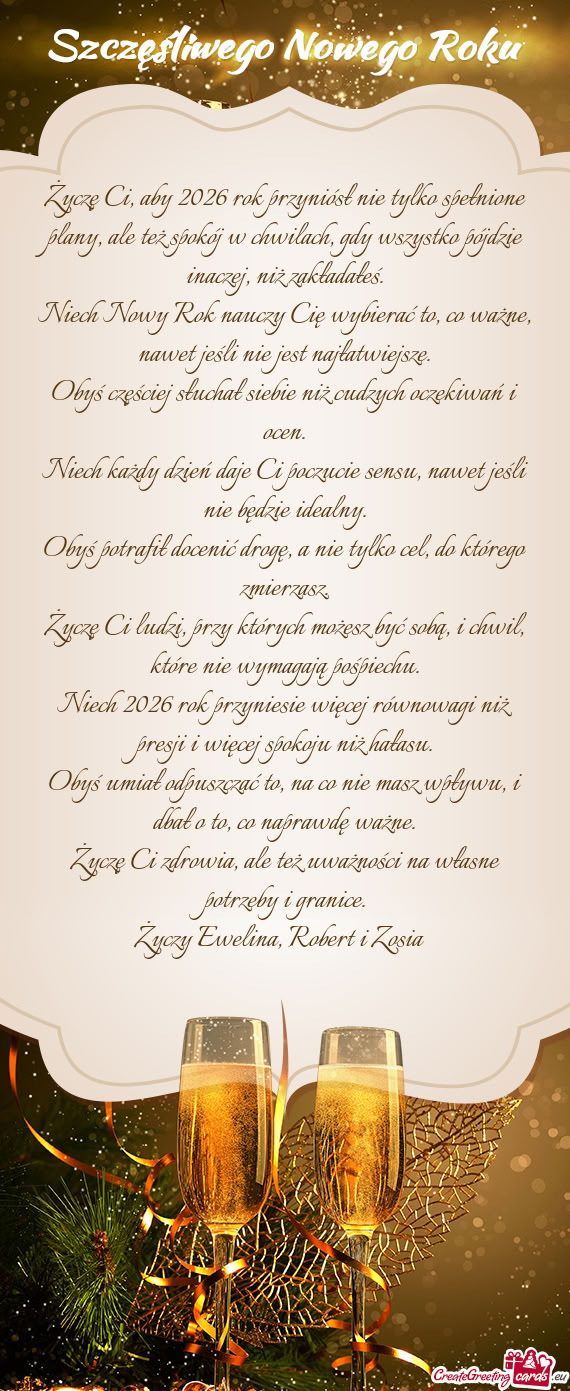 Szczęśliwego Nowego Roku
Życzę Ci, aby 2026 rok przyniósł nie tylko spełnione
plany, ale też spokój w chwilach, gdy wszystko pójdzie
inaczej, niż zakładałeś.
Niech Nowy Rok nauczy Cię wybierać to, co ważne,
nawet jeśli nie jest najłatwiejsze.
Obyś częściej słuchał siebie niż cudzych oczekiwań i
ocen.
Niech każdy dzień daje Ci poczucie sensu, nawet jeśli
nie będzie idealny.
Obyś potrafił docenić drogę, a nie tylko cel, do którego
zmierzasz.
Życzę Ci ludzi, przy których możesz być sobą, i chwil,
które nie wymagają pośpiechu.
Niech 2026 rok przyniesie więcej równowagi niż
presji i więcej spokoju niż hałasu.
Obyś umiał odpuszczać to, na co nie masz wpływu, i
dbał o to, co naprawdę ważne.
Życzę Ci zdrowia, ale też uważności na własne
potrzeby i granice.
Życzy Ewelina, Robert i Zosia
CreateGreetingcards.eu